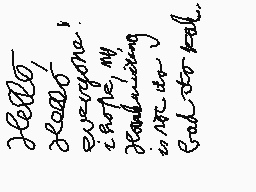 Hello,
Hello
everyone!
i hope, my
Handwriting
is not so
bad to read.